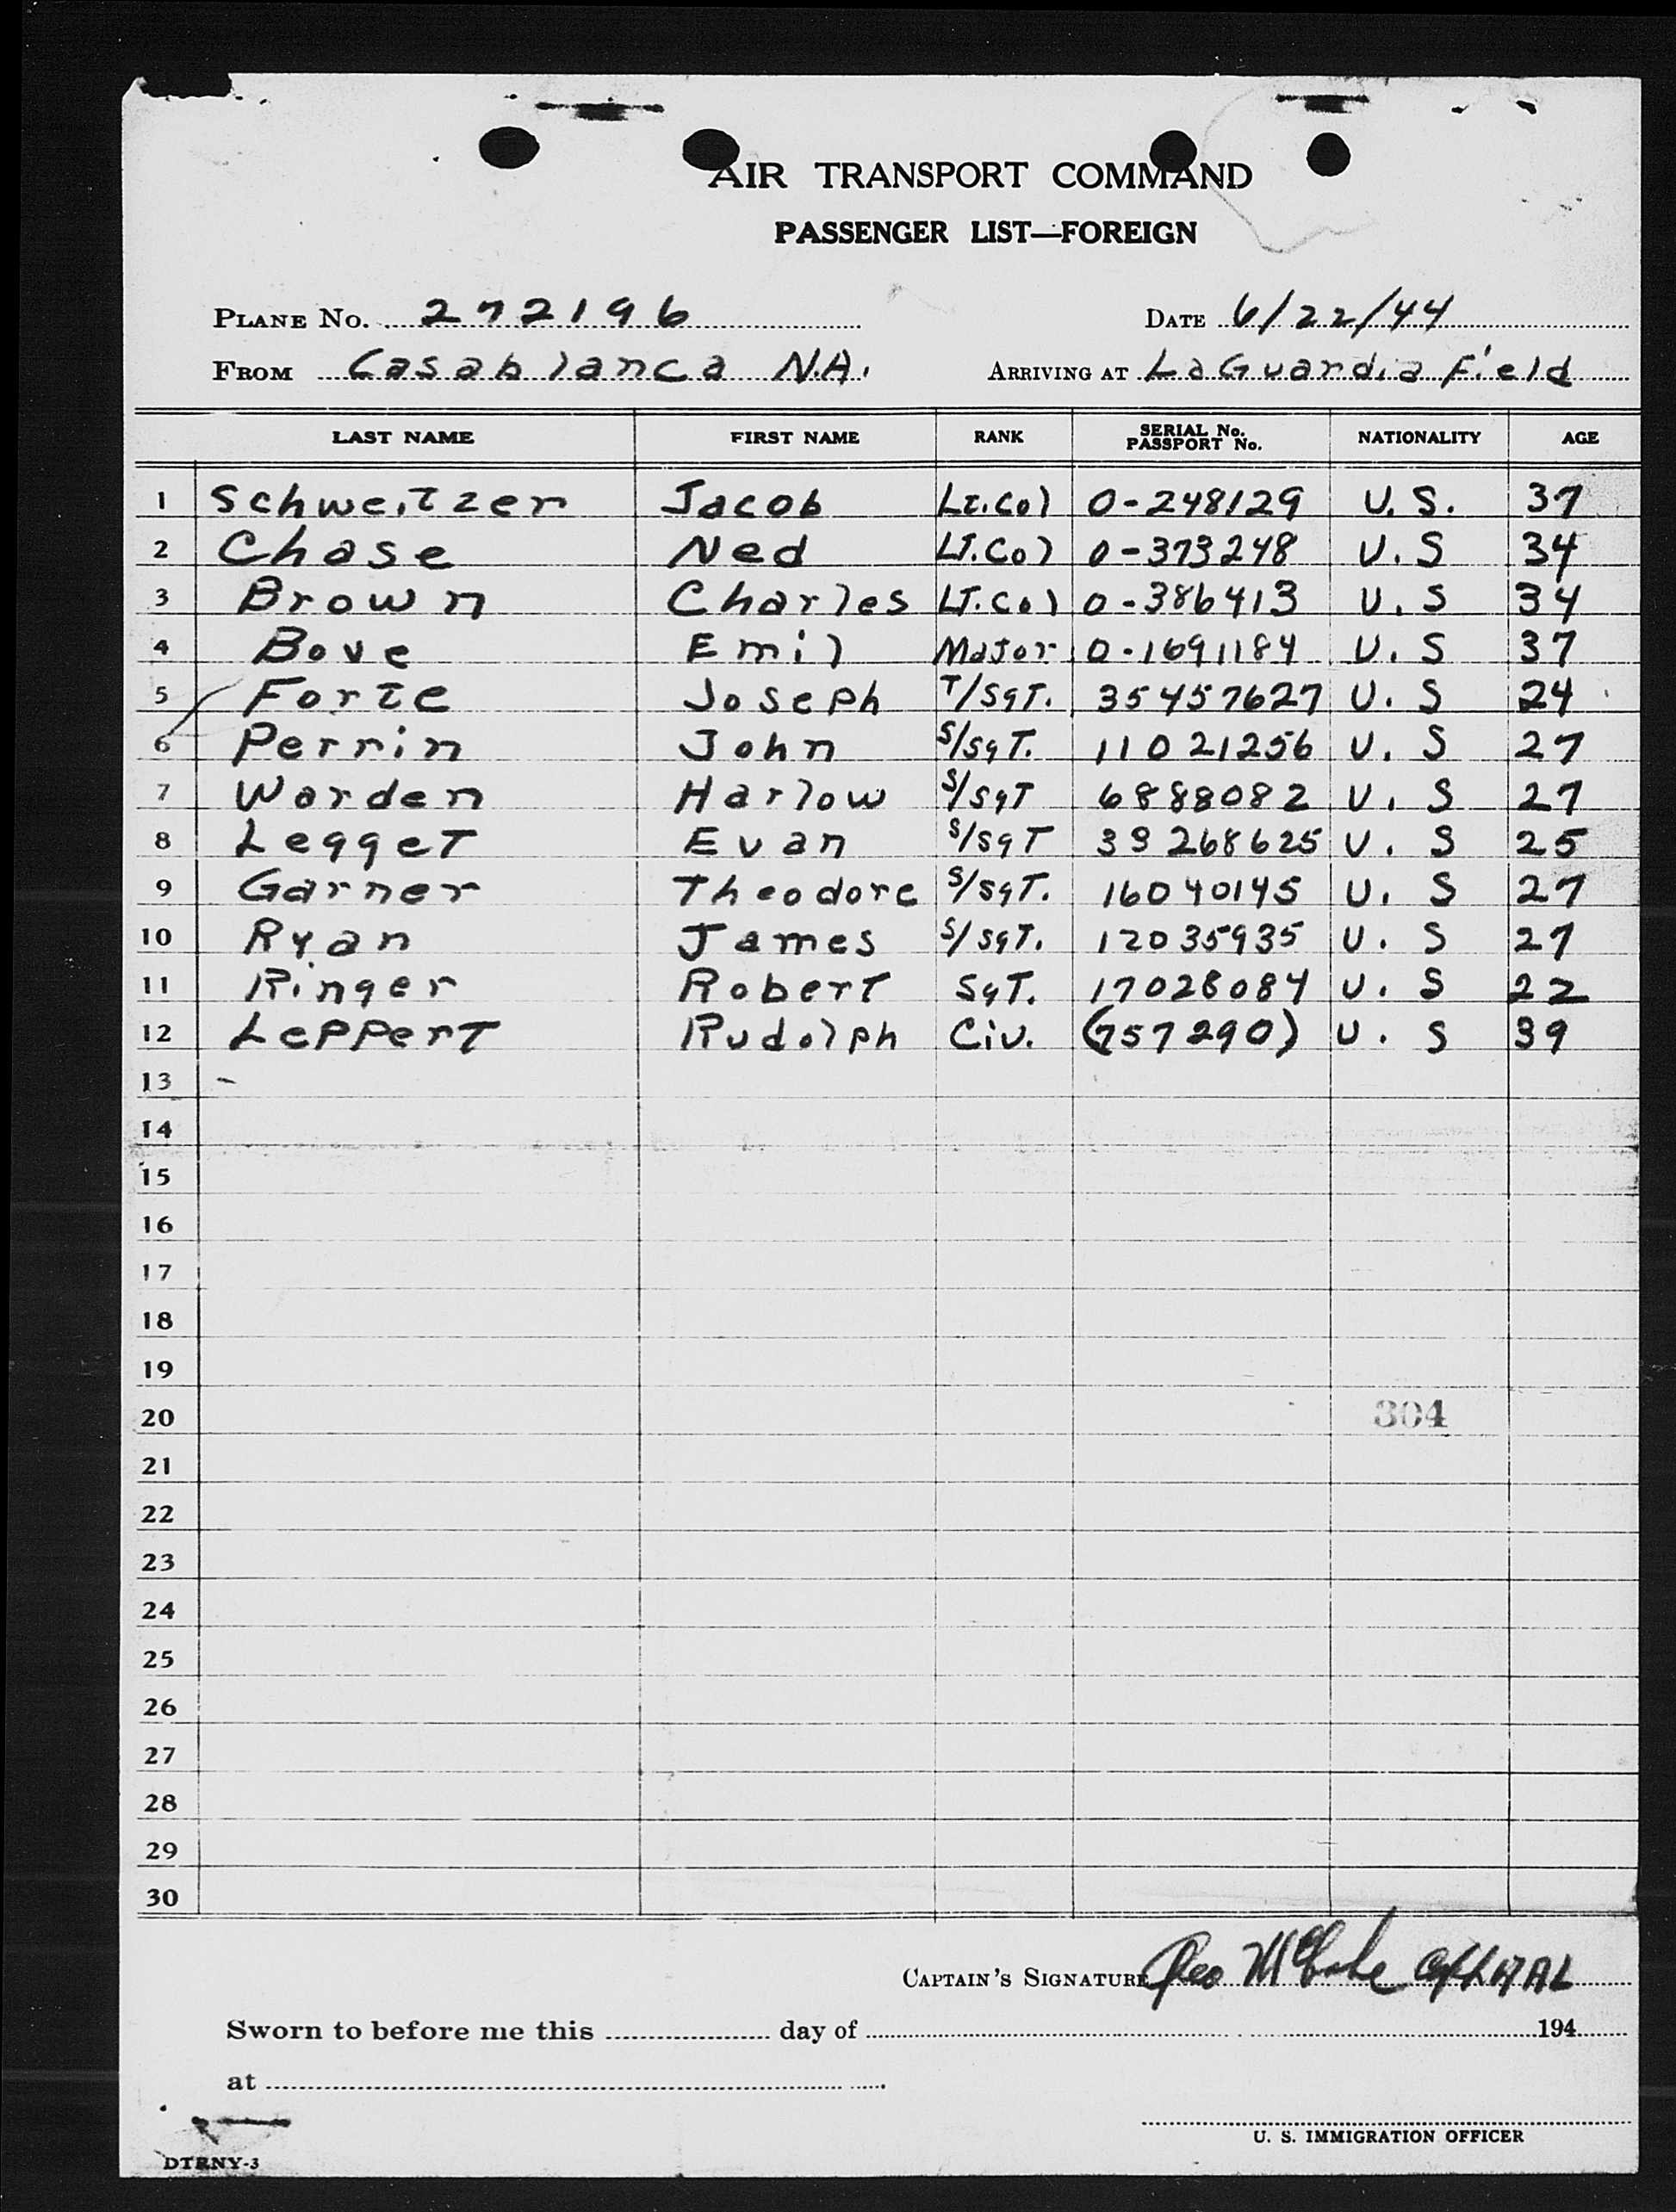 AIR TRANSPORT COMMAND
PASSENGER LIST—FOREIGN
PLANE NO. 272196 DATE 6/22/44
FROM Casablanca N.A. ARRIVING AT LaGuardia Field
LAST NAME FIRST NAME RANK SERIAL No. PASSPORT No. NATIONALITY AGE
1 Schweitzer Jacob Lt.Col 0-248129 U.S. 37
2 Chase Ned LT.Col 0-373248 U.S 34
3 Brown Charles LT.Col 0-386413 U.S 34
4 Bove Emil Major 0-1691184 U.S 37
5 Forte Joseph T/SgT. 35457627 U.S 24
6 Perrin John S/SgT. 11021256 U.S 27
7 Warden Harlow S/SgT 6888082 U.S 27
8 LeggeT Evan S/SgT 39268625 U.S 25
9 Garner Theodore S/SgT. 16040145 U.S 27
10 Ryan James S/SgT. 12035935 U.S 27
11 Ringer Robert SgT. 17028084 U.S 22
12 Leppert Rudolph Civ. (757290) U.S 39
13
14
15
16
17
18
19
20 304
21
22
23
24
25
26
27
28
29
30
CAPTAIN'S SIGNATURE Geo
Sworn to before me this day of 194
at
U. S. IMMIGRATION OFFICER
DTRNY-3